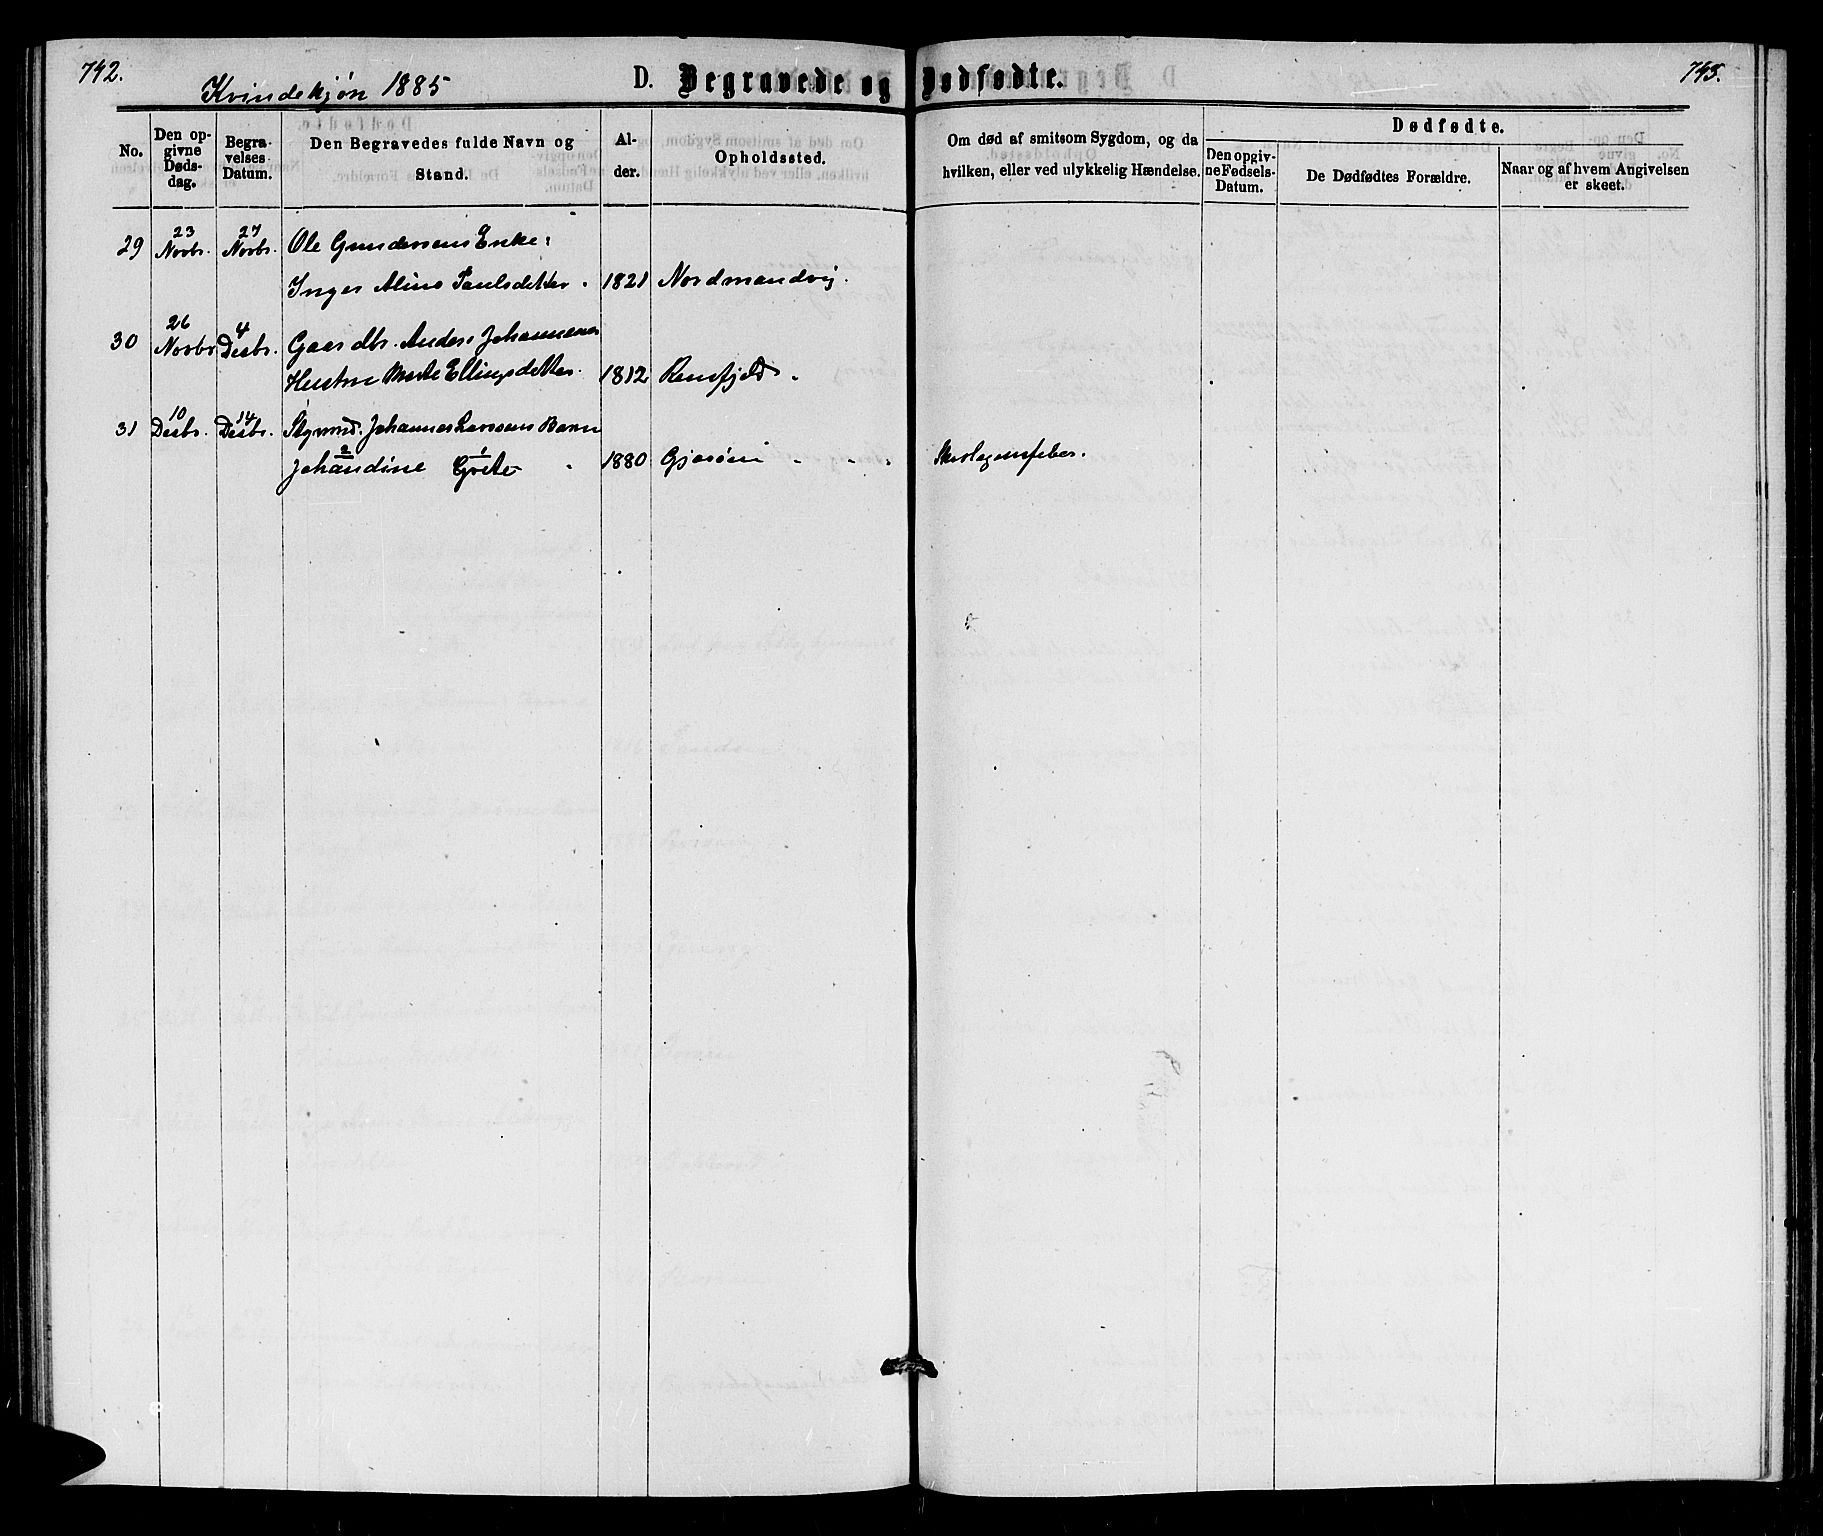 742.
Kvindekjøn 1885
D. Begravede og Dødfødte.
743.
No.
Den opgivne Dødsdag.
Begravelses Datum.
Den Begravedes fulde Navn og Stand.
Alder.
Opholdssted.
Om død af smitsom Sygdom, og da hvilken, eller ved ulykkelig Hændelse.
Dødfødte.
Den opgivne Fødsels-Datum.
De Dødfødtes Forældre.
Naar og af hvem Angivelsen er skeet.
29 23 Novbr. 27 Novbr. Ole Gundersens Enke:
Inger Aline Paulsdatter. 1821 Nordmandvig.
30 26 Novbr 4 Desbr. Gaardbr. Anders Johannesens
Hustru Marte Ellingsdatter. 1812 Rensfjeld.
31 10 Desbr. 14 Desbr. Johannes Larsens Barn
Johandine 2 Grete 1 1880 Gjøsøen Skarlagensfeber.